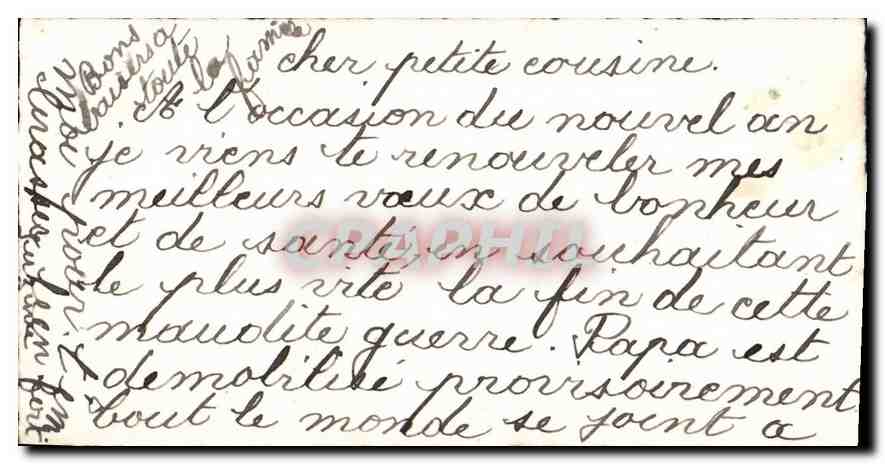 cher petite cousine.
A l'occasion du nouvel an
je viens te renouveler mes
meilleurs vœux de bonheur
et de santé, en souhaitant
le plus vite la fin de cette
maudite guerre. Papa est
demobilisé provisoirement
tout le monde se joint a
moi pour t'em
bien fort
Bons
baisers a
toute
la
famille